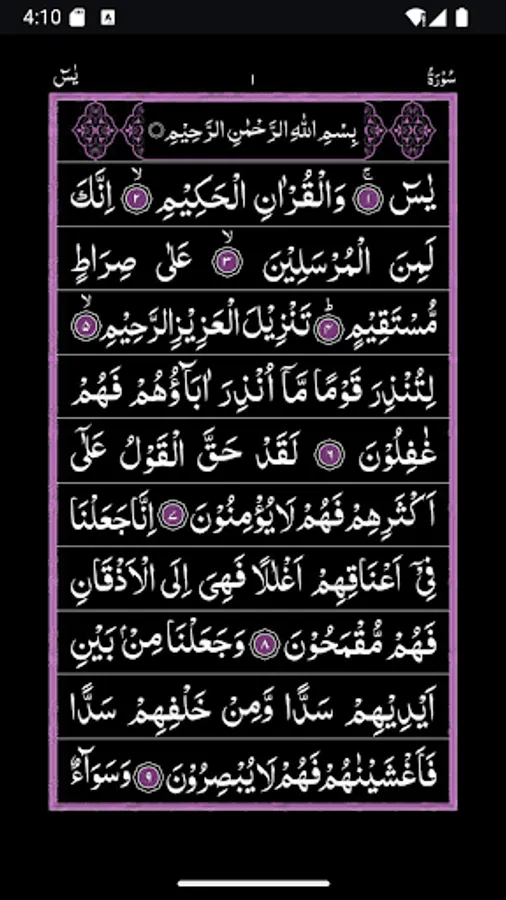 4:10
يٰسٓ ١ سُوْرَةُ
بِسْمِ اللهِ الرَّحْمٰنِ الرَّحِيْمِ
يٰسٓ ۚ ﴿١﴾ وَالْقُرْاٰنِ الْحَكِيْمِ ۙ ﴿٢﴾ اِنَّكَ
لَمِنَ الْمُرْسَلِيْنَ ۙ ﴿٣﴾ عَلٰى صِرَاطٍ
مُّسْتَقِيْمٍ ؕ ﴿٤﴾ تَنْزِيْلَ الْعَزِيْزِ الرَّحِيْمِ ۙ ﴿٥﴾
لِتُنْذِرَ قَوْمًا مَّاۤ اُنْذِرَ اٰبَآؤُهُمْ فَهُمْ
غٰفِلُوْنَ ﴿٦﴾ لَقَدْ حَقَّ الْقَوْلُ عَلٰٓى
اَكْثَرِهِمْ فَهُمْ لَا يُؤْمِنُوْنَ ﴿٧﴾ اِنَّا جَعَلْنَا
فِيْٓ اَعْنَاقِهِمْ اَغْلٰلًا فَهِيَ اِلَى الْاَذْقَانِ
فَهُمْ مُّقْمَحُوْنَ ﴿٨﴾ وَجَعَلْنَا مِنْۢ بَيْنِ
اَيْدِيْهِمْ سَدًّا وَّمِنْ خَلْفِهِمْ سَدًّا
فَاَغْشَيْنٰهُمْ فَهُمْ لَا يُبْصِرُوْنَ ﴿٩﴾ وَسَوَآءٌ